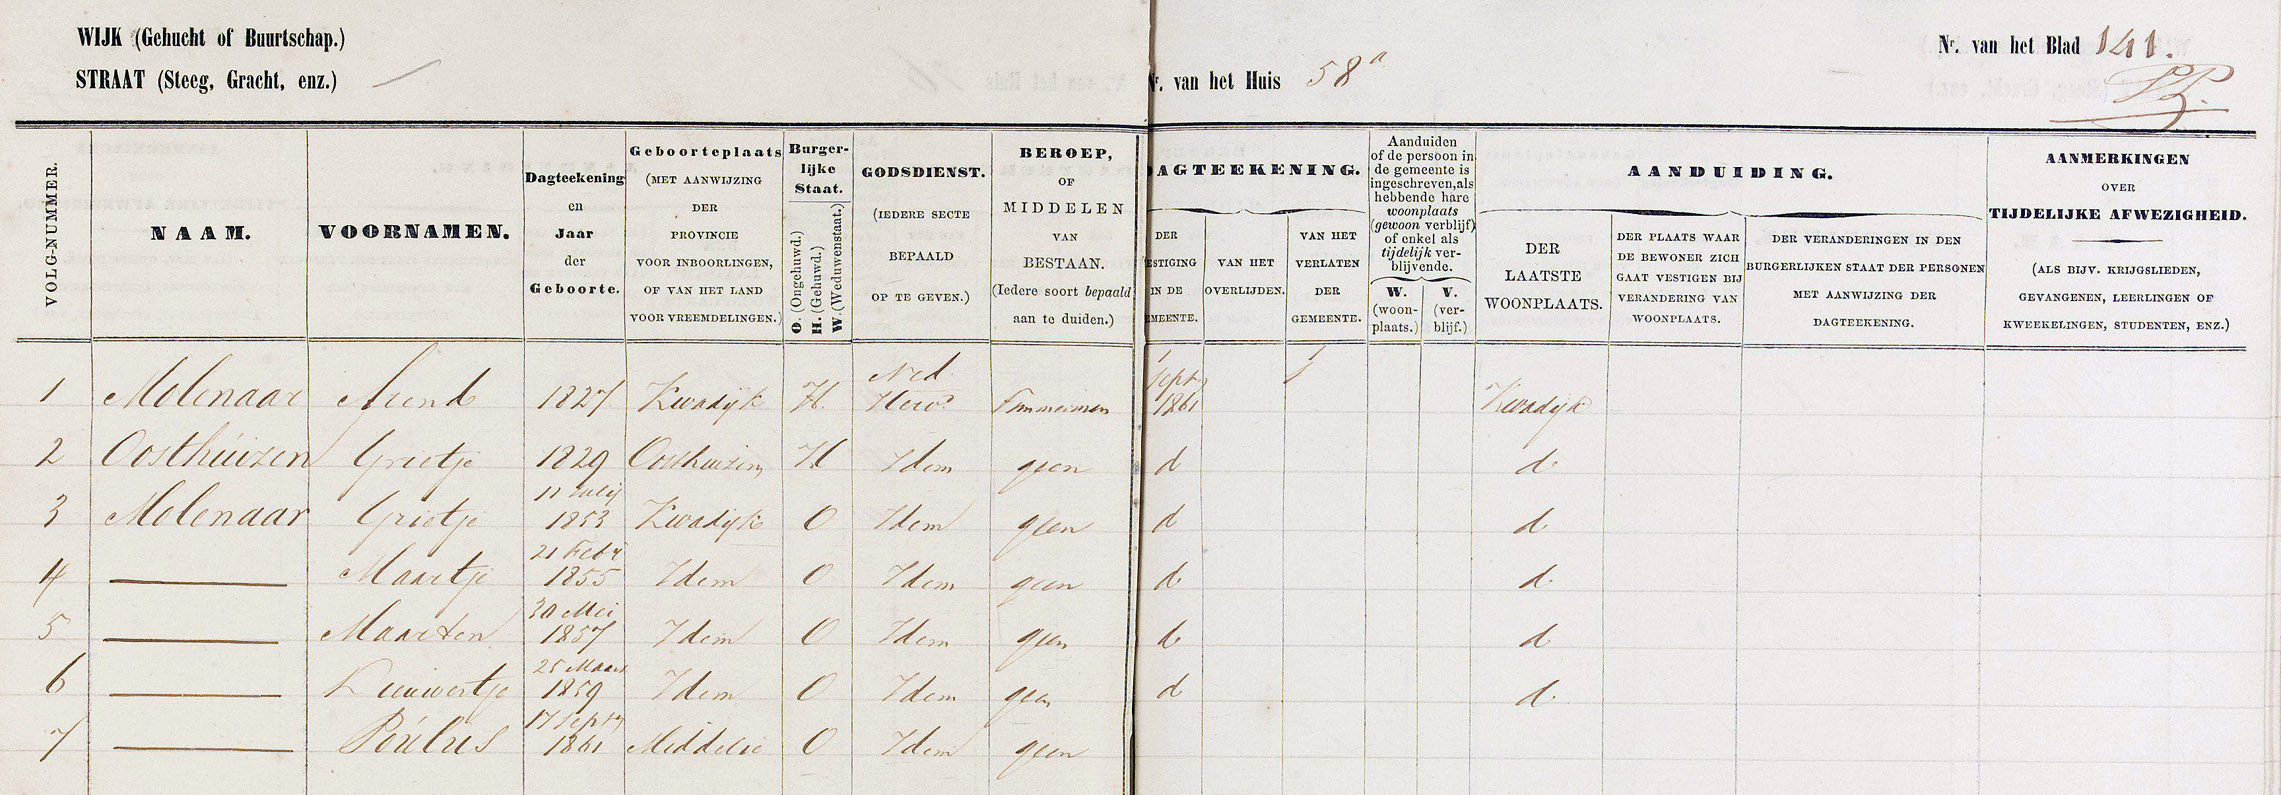 WIJK (Gehucht of Buurtschap.)
STRAAT (Steeg, Gracht, enz.)
Nr. van het Huis 58a
Nr. van het Blad 141.
VOLG-NUMMER.
NAAM.
VOORNAMEN.
Dagteekening
en
Jaar
der
Geboorte.
Geboorteplaats
(MET AANWIJZING
DER
PROVINCIE
VOOR INBOORLINGEN,
OF VAN HET LAND
VOOR VREEMDELINGEN.)
Burger-
lijke
Staat.
O. (Ongehuwd.)
H. (Gehuwd.)
W. (Weduwenstaat.)
GODSDIENST.
(IEDERE SECTE
BEPAALD
OP TE GEVEN.)
BEROEP,
OF
MIDDELEN
VAN
BESTAAN.
(Iedere soort bepaald
aan te duiden.)
DAGTEEKENING.
DER
ESTIGING
IN DE
EMEENTE.
VAN HET
OVERLIJDEN.
VAN HET
VERLATEN
DER
GEMEENTE.
Aanduiden
of de persoon in
de gemeente is
ingeschreven, als
hebbende hare
woonplaats
(gewoon verblijf)
of enkel als
tijdelijk ver-
blijvende.
W.
(woon-
plaats.)
V.
(ver-
blijf.)
AANDUIDING.
DER
LAATSTE
WOONPLAATS.
DER PLAATS WAAR
DE BEWONER ZICH
GAAT VESTIGEN BIJ
VERANDERING VAN
WOONPLAATS.
DER VERANDERINGEN IN DEN
BURGERLIJKEN STAAT DER PERSONEN
MET AANWIJZING DER
DAGTEEKENING.
AANMERKINGEN
OVER
TIJDELIJKE AFWEZIGHEID.
(ALS BIJV. KRIJGSLIEDEN,
GEVANGENEN, LEERLINGEN OF
KWEEKELINGEN, STUDENTEN, ENZ.)
1 Molenaar Arend 1827 Kwadijk H. Ned Herv. Timmerman 1 Septr 1861 Kwadijk
2 Oosthuizen Grietje 1829 Oosthuizen H Idem geen d d
3 Molenaar Grietje 11 Julij 1853 Kwadijk O Idem geen d d
4 Maartje 21 Febr 1855 Idem O Idem geen d d
5 Maarten 30 Mei 1857 Idem O Idem geen d d
6 Lieuwertje 25 Maart 1859 Idem O Idem geen d d
7 Paulus 17 Septr 1861 Middelie O Idem geen